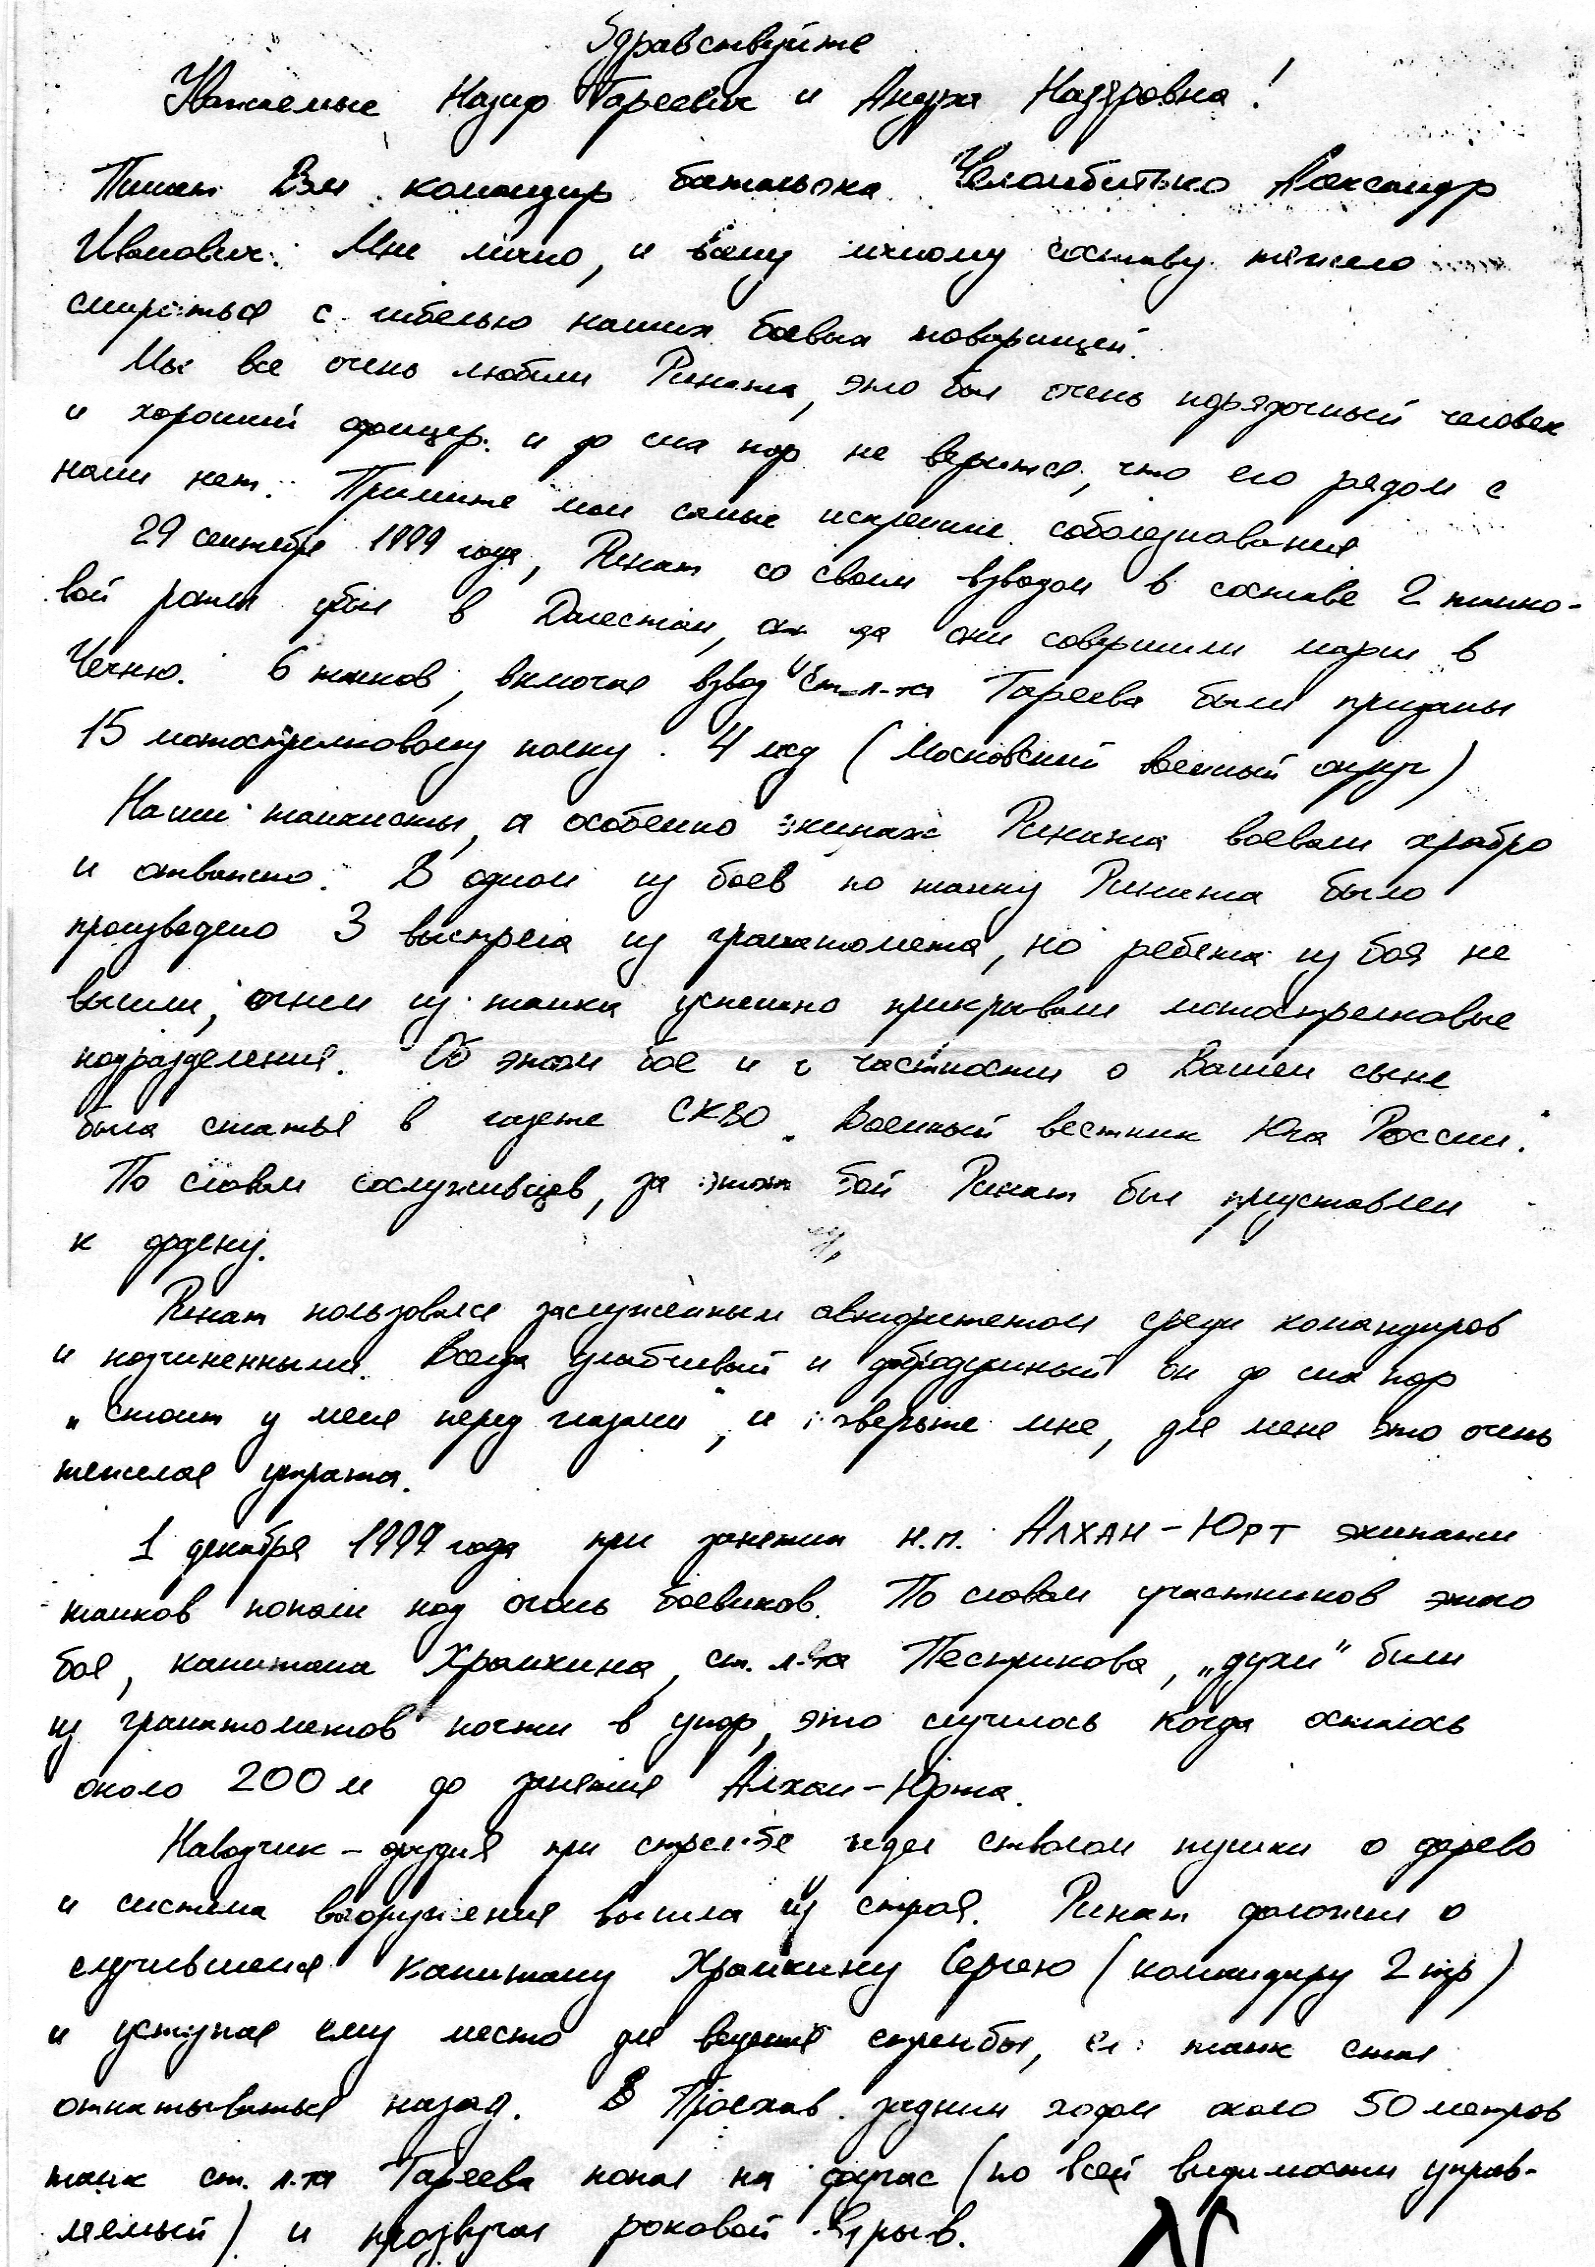 Здравствуйте
Уважаемые Назир Гареевич и Андрха Надяровна!
Пишет Вам командир батальона Челомбитько Александр
Иванович. Мне лично, и всему личному составу тяжело
смириться с гибелью наших боевых товарищей.
Мы все очень любили Рината, это был очень порядочный человек
и хороший офицер. и до сих пор не верится, что его рядом с
нами нет. Примите мои самые искренние соболезнования
29 сентября 1999 года, Ринат со своим взводом в составе 2 танко-
вой роты убыл в Дагестан, они совершили марш в
Чечню. 6 танков, включая взвод ст. л-та Гареева были приданы
15 мотострелковому полку. 4 мсд (Московский военный округ)
Наши танкисты, а особенно экипаж Рината воевали храбро
и отважно. В одном из боев по танку Рината было
произведено 3 выстрела из гранатомета, но ребята из боя не
вышли, огнем из танка успешно прикрывали мотострелковые
подразделения. Об этом бое и в частности о Вашем сыне
была статья в газете СКВО „Военный вестник Юга России".
По словам сослуживцев, за этот бой Ринат был представлен
к ордену.
Ринат пользовался заслуженным авторитетом среди командиров
и подчиненными. Всегда улыбчивый и добродушный он до сих пор
„стоит у меня перед глазами", и поверьте мне, для меня это очень
тяжелая утрата.
1 декабря 1999 года при занятии н.п. АЛХАН-ЮРТ экипажи
танков попали под огонь боевиков. По словам участников этого
боя, капитана Храмкина, ст. л-та Пестрикова, „духи" били
из гранатометов почти в упор, это случилось когда осталось
около 200 м до занятия Алхан-Юрта.
Наводчик-орудия при стрельбе задел стволом пушки о дерево
и система вооружения вышла из строя. Ринат доложил о
случившемся капитану Храмкину Сергею (командиру 2 тр)
и уступая ему место для ведения стрельбы, танк стал
откатываться назад. Проехав задним ходом около 50 метров
танк ст. л-та Гареева попал на фугас (по всей видимости управ-
ляемый) и прозвучал роковой взрыв.